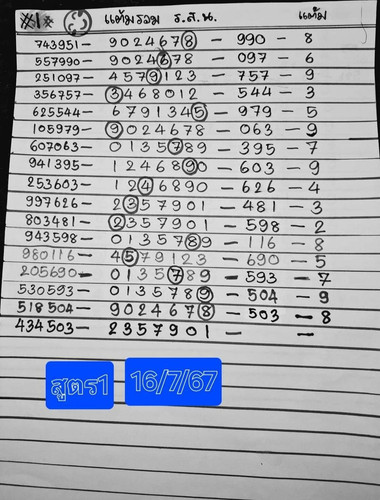 แต้มรวม ร.ส.น. แต้ม
743951 – 9024678 – 990 – 8
557990 – 9024678 – 097 – 6
251097 – 4579123 – 757 – 9
356757 – 3468012 – 544 – 3
625544 – 6791345 – 979 – 5
105979 – 9024678 – 063 – 9
607063 – 0135789 – 395 – 7
941395 – 1246890 – 603 – 9
253603 – 1246890 – 626 – 4
997626 – 2357901 – 481 – 3
803481 – 2357901 – 598 – 2
943598 – 0135789 – 116 – 8
980116 – 4579123 – 690 – 5
205690 – 0135789 – 593 – 7
530593 – 0135789 – 504 – 9
518504 – 9024678 – 503 – 8
434503 – 2357901 – –
สูตร1 16/7/67